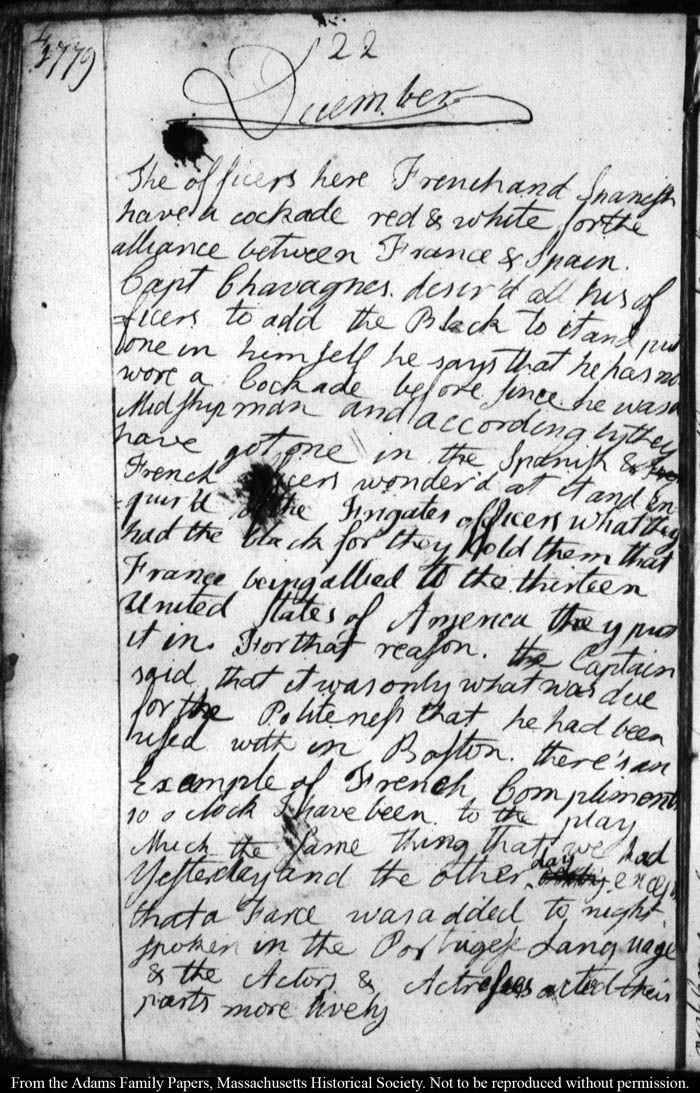 1779
22
December
The officers here French and Spanish
have a cockade red & white for the
alliance between France & Spain.
Capt Chavagnes. desir'd all his of
ficers to add the Black to it and put
one in himself he says that he has not
wore a Cockade before since he was a
Midshipman and accordingly they
have got one in the Spanish &
French officers wonder'd at it and En
quir'd of the Frigates officers what they
had the black for they told them that
France being allied to the thirteen
United States of America they put
it in. For that reason. the Captain
said that it was only what was due
for the Politeness that he had been
used with in Boston. there's an
Example of French Compliments
10 o clock I have been to the play
Much the same thing that we had
Yesterday and the other day except
that a Farce was added to night
spoken in the Portugese Language
& the Actors & Actresses acted their
parts more lively
From the Adams Family Papers, Massachusetts Historical Society. Not to be reproduced without permission.